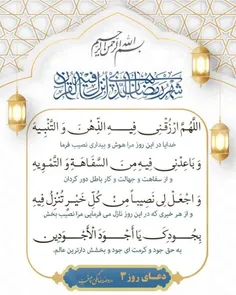 بسم الله الرحمن الرحیم
اللّهُمَّ ارْزُقْنی فیهِ الذِّهْنَ وَ التَّنْبیهَ
خدایا در این روز مرا هوش و بیداری نصیب فرما
وَ باعِدْنی فیهِ مِنَ السَّفاهَةِ وَ التَّمْویهِ
و از سفاهت و جهالت و کار باطل دور گردان
وَ اجْعَلْ لی نَصیباً مِنْ کُلِّ خَیْرٍ تُنْزِلُ فیهِ
و از هر خیری که در این روز نازل می فرمایی مرا نصیب بخش
بِجودِکَ یا أَجْوَدَ الْأَجْوَدینَ
به حق جود و کرمت ای جود و بخشش دارترین عالم.
دعای روز ۳